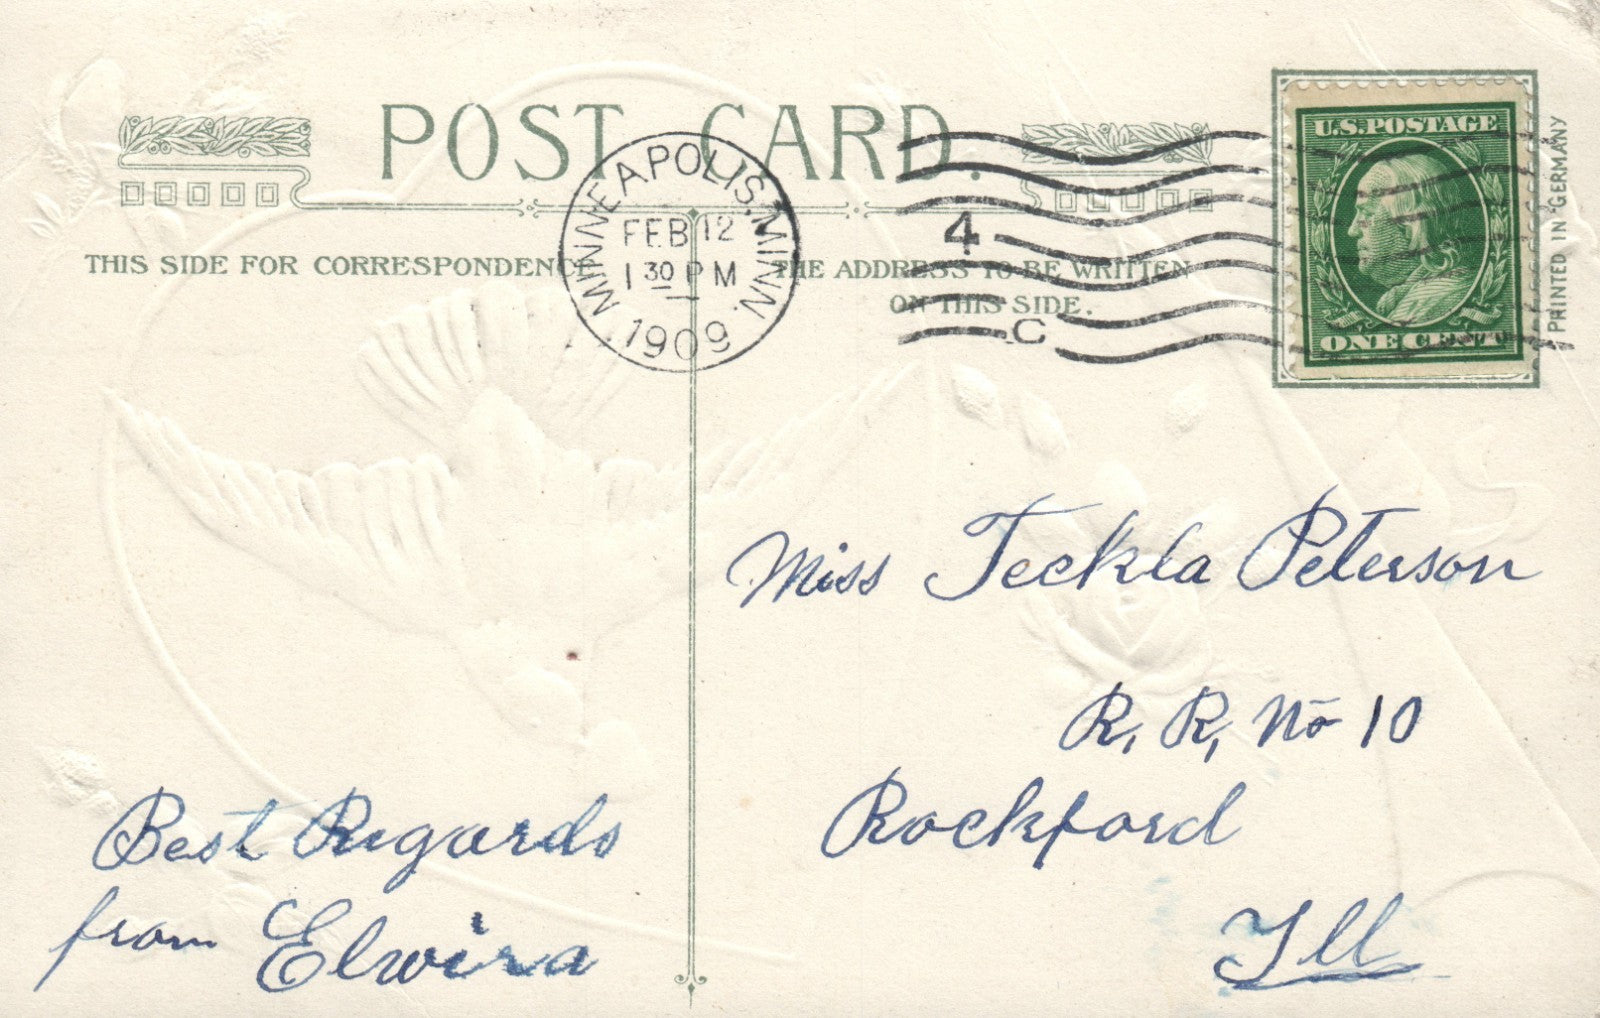 POST CARD.
THIS SIDE FOR CORRESPONDENCE
THE ADDRESS TO BE WRITTEN
ON THIS SIDE.
MINNEAPOLIS, MINN.
FEB 12
1 30 P M
1909
4
C
U.S. POSTAGE
ONE CENT
PRINTED IN GERMANY
Miss Teckla Peterson
R, R, No 10
Rockford
Ill
Best Regards
from Elwira